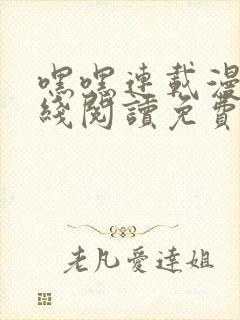 嘿嘿連載漫
綫閱讀免費
老凡愛達姐